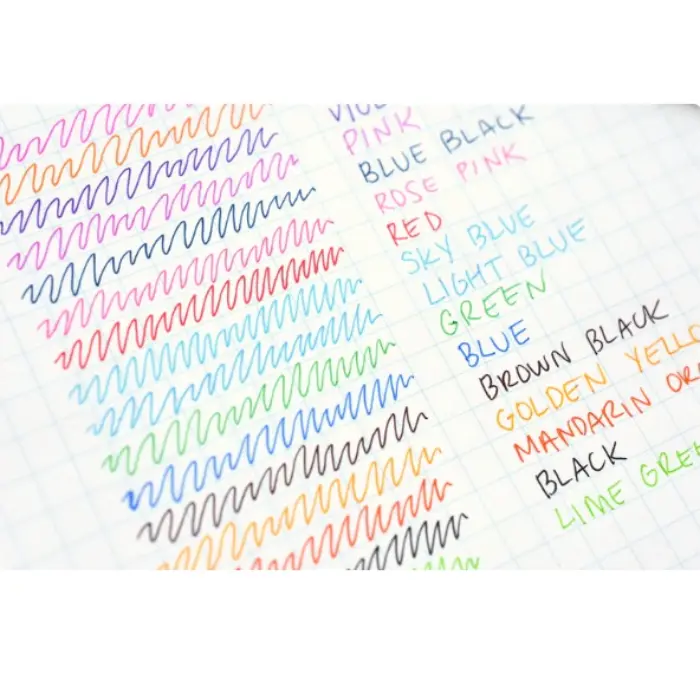 PINK
BLUE BLACK
ROSE PINK
RED
SKY BLUE
LIGHT BLUE
GREEN
BLUE
BROWN BLACK
GOLDEN YELLO
MANDARIN OR
BLACK
LIME GREE